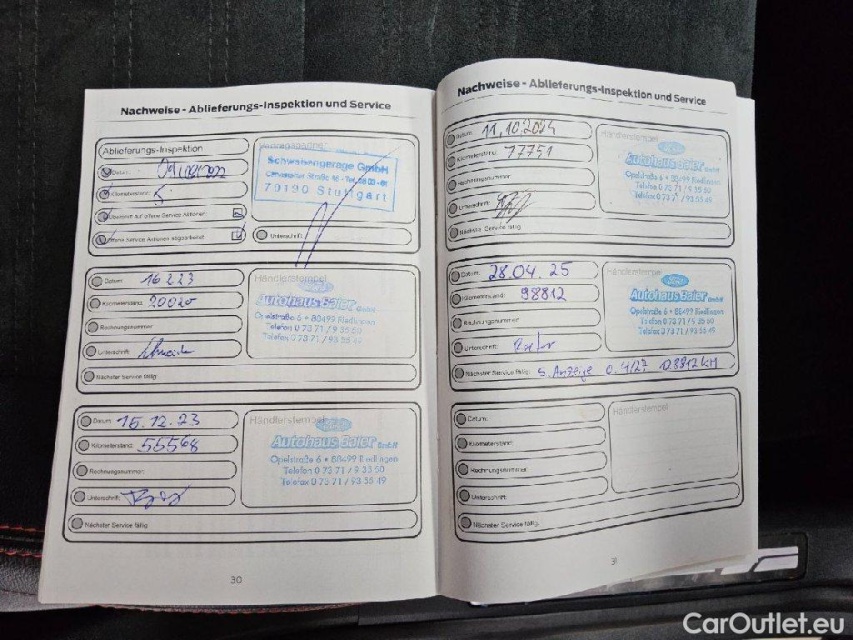 Nachweise - Ablieferungs-Inspektion und Service
Ablieferungs-Inspektion
Datum:
Kilometerstand: 5
Übernahme auf offene Service Aktionen:
offene Service Aktionen abgearbeitet:
Schwabengarage GmbH
70190 Stuttgart
Unterschrift:
Datum: 16 2 23
Kilometerstand: 20020
Rechnungsnummer:
Unterschrift:
Nächster Service fällig:
Händlerstempel
Ford
Autohaus Baier GmbH
Opelstraße 6 • 88499 Riedlingen
Telefon 0 73 71 / 9 35 50
Telefax 0 73 71 / 93 55 49
Datum: 15.12.23
Kilometerstand: 55568
Rechnungsnummer:
Unterschrift:
Nächster Service fällig:
Händlerstempel
Ford
Autohaus Baier GmbH
Opelstraße 6 • 88499 Riedlingen
Telefon 0 73 71 / 9 35 50
Telefax 0 73 71 / 93 55 49
30
Nachweise - Ablieferungs-Inspektion und Service
Datum: 11.10.2024
Kilometerstand: 77751
Rechnungsnummer:
Unterschrift:
Nächster Service fällig:
Händlerstempel
Ford
Autohaus Baier GmbH
Opelstraße 6 • 88499 Riedlingen
Telefon 0 73 71 / 9 35 50
Telefax 0 73 71 / 93 55 49
Datum: 28.04.25
Kilometerstand: 98812
Rechnungsnummer:
Unterschrift:
Nächster Service fällig: s. Anzeige o. 4/27 108812 KM
Händlerstempel
Ford
Autohaus Baier GmbH
Opelstraße 6 • 88499 Riedlingen
Telefon 0 73 71 / 9 35 50
Telefax 0 73 71 / 93 55 49
Datum:
Kilometerstand:
Rechnungsnummer:
Unterschrift:
Nächster Service fällig:
Händlerstempel
31
CarOutlet.eu